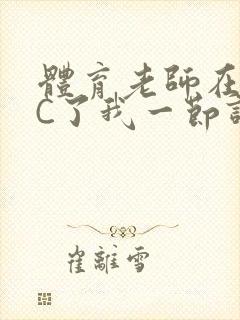 體育老師在
C了我一節
崔離雪